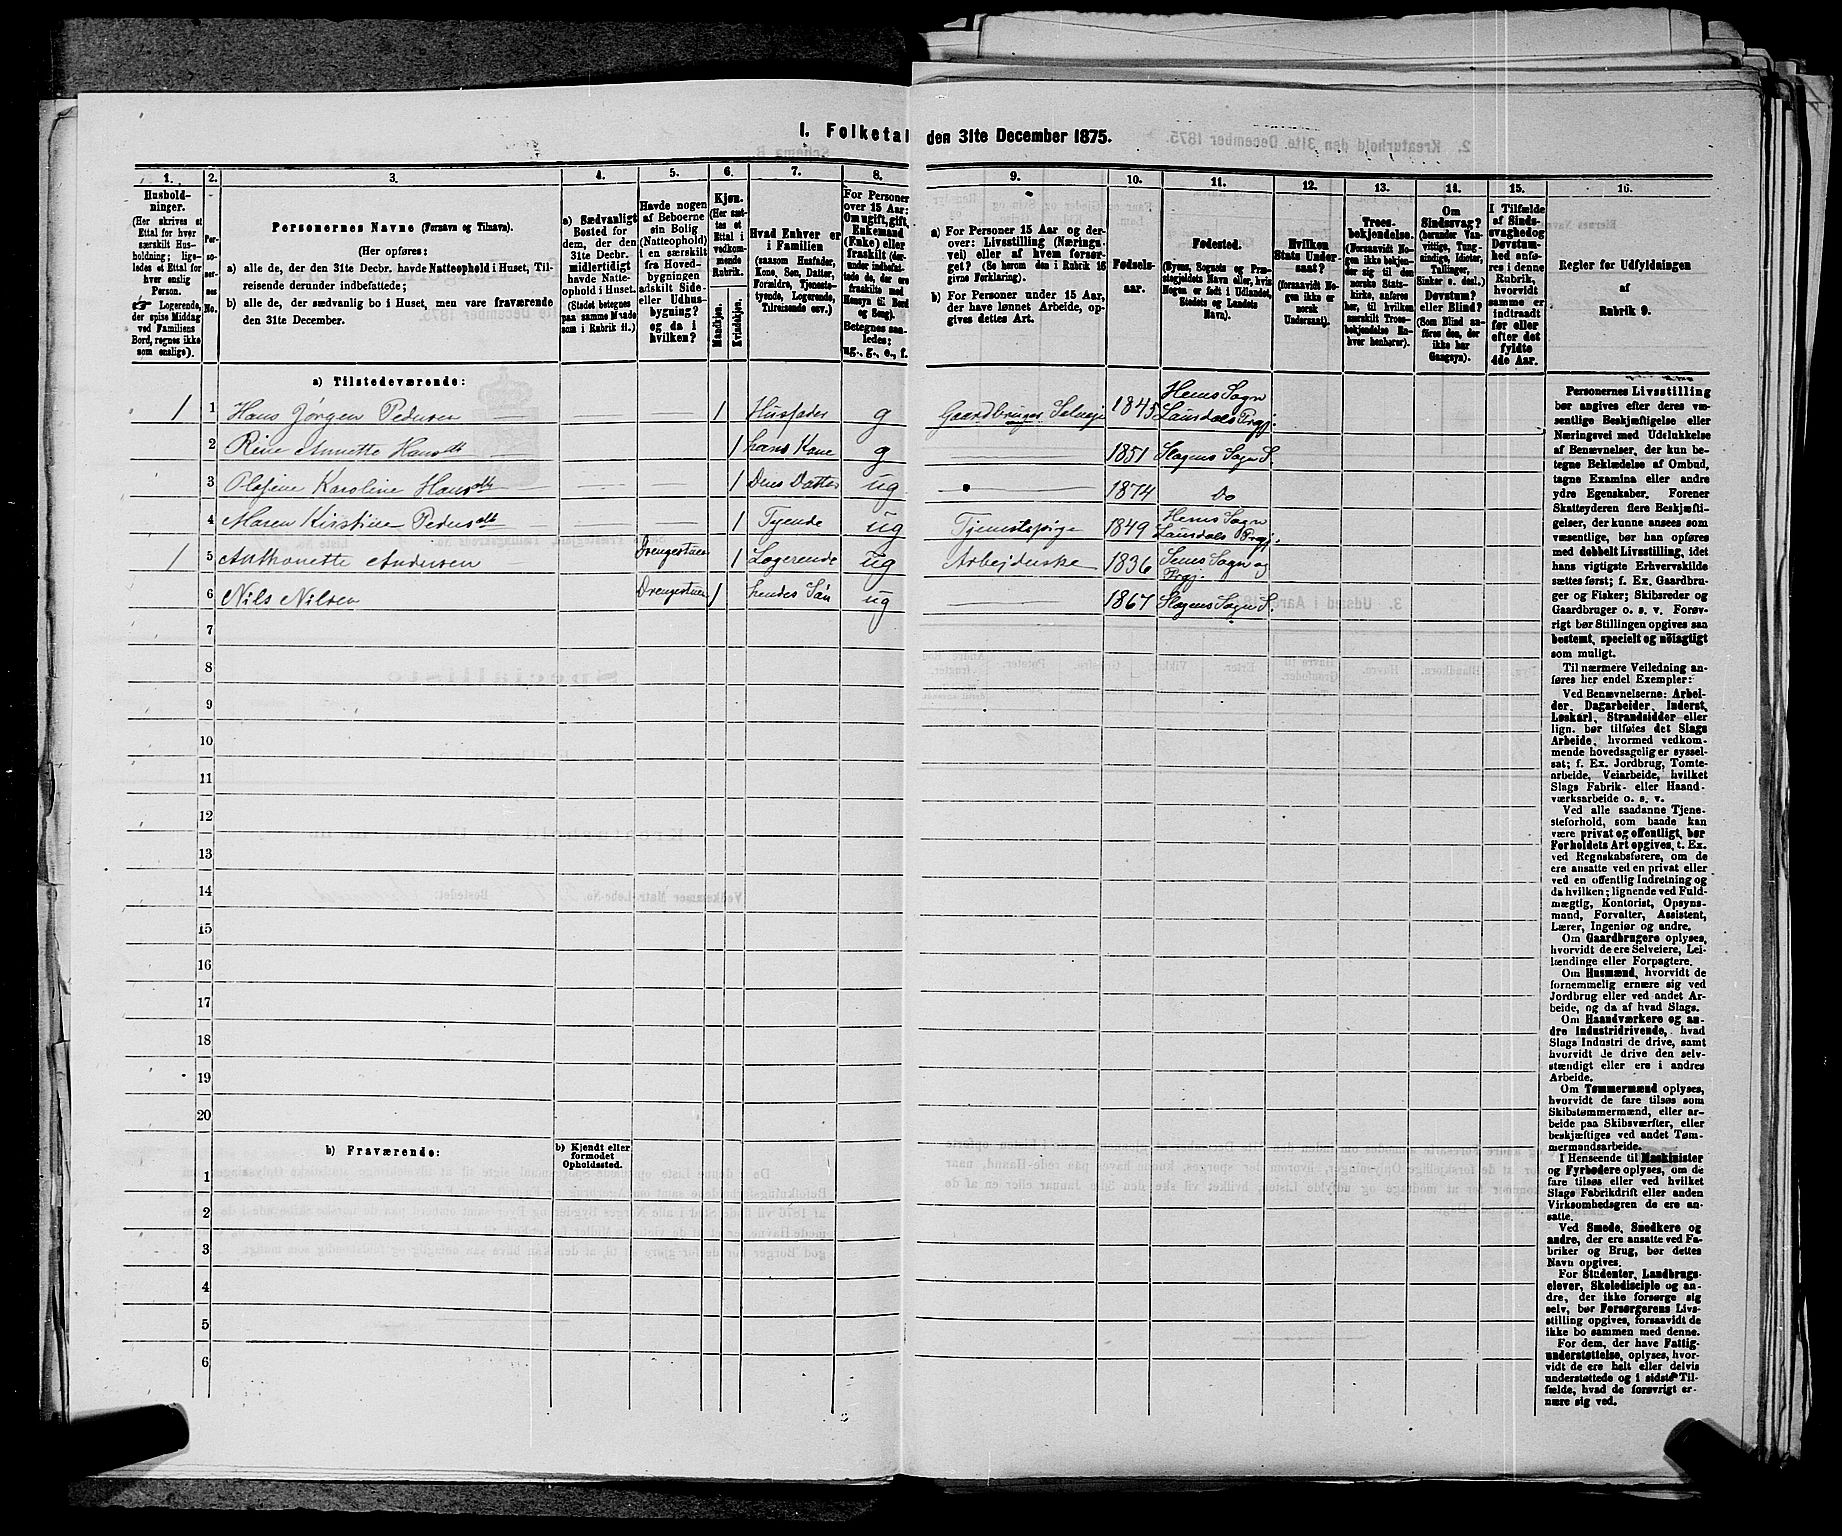 I. Folketal den 31te December 1875.
1. 2. 3. 4. 5. 6. 7. 8. 9. 10. 11. 12. 13. 14. 15. 16.
Husholdninger.
(Her skrives et
Ettal for hver
særskilt Hus-
holdning; lige-
ledes et Ettal for
hver enslig
Person.
☞ Logerende,
der spise Middag
ved Familiens
Bord, regnes ikke
som enslige).
Personernes No.
Personernes Navne (Fornavn og Tilnavn).
(Her opføres:
a) alle de, der den 31te Decbr. havde Natteophold i Huset, Til-
reisende derunder indbefattede;
b) alle de, der sædvanlig bo i Huset, men vare fraværende
den 31te December.
a) Sædvanligt
Bosted for
dem, der den
31te Decbr.
midlertidigt
havde Natte-
ophold i Huset.
(Stedet betegnes
paa samme Maade
som i Rubrik 11.)
Havde nogen
af Beboerne
sin Bolig
(Natteophold)
i en særskilt
fra Hoved-
bygningen
adskilt Side-
eller Udhus-
bygning?
og da i
hvilken?
Kjøn.
(Her sæt-
tes et
Ettal i
vedkom-
mende
Rubrik.
Mandkjøn.
Kvindekjøn.
Hvad Enhver er
i Familien
(saasom Husfader,
Kone, Søn, Datter,
Forældre, Tjeneste-
tyende, Logerende,
Tilreisende osv.)
For Personer
over 15 Aar:
Om ugift, gift,
Enkemand
(Enke) eller
fraskilt (der-
under indbefat-
tede de, der ere
fraskilte med
Hensyn til Bord
og Seng).
Betegnes saa-
ledes:
ug., g., e., f.
a) For Personer 15 Aar og der-
over: Livsstilling (Nærings-
vei) eller af hvem forsør-
get? (Se herom den i Rubrik 16
givne Forklaring).
b) For Personer under 15 Aar,
der have lønnet Arbeide, op-
gives dettes Art.
Fødsels-
aar.
Fødested.
(Byens, Sognets og Præ-
stegjeldets Navn eller, hvis
Nogen er født i Udlandet,
Stedets og Landets
Navn).
Hvilken
Stats Under-
saat?
(forsaavidt No-
gen ikke er
norsk
Undersaat).
Troes-
bekjendelse.
(Forsaavidt No-
gen ikke bekjen-
der sig til den
norske Stats-
kirke, anføres
her, til hvilken
særskilt Troes-
bekjendelse En-
hver henhører).
Om
Sindssvag?
(herunder Van-
vittige, Tung-
sindige, Idioter,
Tullinger,
Sinker o. desl.)
Døvstum?
eller Blind?
(Som Blind an-
føres den, der
ikke har
Gangsyn).
I Tilfælde
af Sinds-
svaghed og
Døvstum-
hed anfø-
res i denne
Rubrik,
hvorvidt
samme er
indtraadt
før eller
efter det
fyldte
4de Aar.
Regler for Udfyldningen
af
Rubrik 9.
a) Tilstedeværende:
1 1 Hans Jørgen Pedersen — — 1 Husfader g Gaardbruger Selveje 1845 Hems Sogn Laurdals Prgj.
2 Rine Annette Hansdt — — 1 hans Kone g — 1851 Slagens Sogn S.
3 Olefine Karoline Hansdt — — 1 Deres Datter ug — 1874 Do
4 Maren Kirstine Pedersdt — — 1 Tyende ug Tjenestepige 1849 Hems Sogn Laurdals Prgj.
1 5 Anthonette Andersen — Drengestuen 1 Logerende ug Arbejderske 1836 Sems Sogn og Prgj.
6 Nils Nilsen Drengestuen 1 hendes Søn ug — 1867 Slagens Sogn S.
7
8
9
10
11
12
13
14
15
16
17
18
19
20
b) Fraværende:
b) Kjendt eller
formodet
Opholdssted.
1
2
3
4
5
6
Personernes Livsstilling
bør angives efter deres væ-
sentlige Beskjæftigelse eller
Næringsvei med Udelukkelse
af Benævnelser, der kun be-
tegne Beklædelse af Ombud,
tagne Examina eller andre
ydre Egenskaber. Forener
Skatteyderen flere Beskjæfti-
gelser, der kunne ansees som
væsentlige, bør han opføres
med dobbelt Livsstilling, idet
hans vigtigste Erhvervskilde
sættes først; f. Ex. Gaardbru-
ger og Fisker; Skibsreder og
Gaardbruger o. s. v. Forøv-
rigt bør Stillingen opgives saa
bestemt, specielt og nöiagtigt
som muligt.
Til nærmere Veiledning an-
føres her endel Exempler:
Ved Benævnelserne: Arbei-
der, Dagarbeider, Inderst,
Løskarl, Strandsidder eller
lign. bør tilføies det Slags
Arbeide, hvormed vedkom-
mende hovedsagelig er syssel-
sat; f. Ex. Jordbrug, Tomte-
arbeide, Veiarbeide, hvilket
Slags Fabrik- eller Haand-
værksarbeide o. s. v.
Ved alle saadanne Tjene-
steforhold, som baade kan
være privat og offentligt, bør
Forholdets Art opgives, t. Ex.
ved Regnskabsførere, om de
ere ansatte ved en privat eller
ved en offentlig Indretning og
da hvilken; lignende ved Fuld-
mægtig, Kontorist, Opsyns-
mand, Forvalter, Assistent,
Lærer, Ingeniør og andre.
Om Gaardbrugere oplyses,
hvorvidt de ere Selveiere, Lei-
lændinge eller Forpagtere.
Om Husmænd, hvorvidt de
fornemmelig ernære sig ved
Jordbrug eller ved andet Ar-
beide, og da af hvad Slags.
Om Haandværkere og an-
dre Industridrivende, hvad
Slags Industri de drive, samt
hvorvidt de drive den selv-
stændigt eller ere i andres
Arbeide.
Om Tømmermænd oplyses,
hvorvidt de fare tilsøs som
Skibstømmermænd, eller ar-
beide paa Skibsværfter, eller
beskjæftiges ved andet Tøm-
mermandsarbeide.
I Henseende til Maskinister
og Fyrbødere oplyses, om de
fare tilsøs eller ved hvilket
Slags Fabrikdrift eller anden
Virksomhedsgren de ere an-
satte.
Ved Smede, Snedkere og
andre, der ere ansatte ved Fa-
briker og Brug, bør dettes
Navn opgives.
For Studenter, Landbrugs-
elever, Skoledisciple og an-
dre, der ikke forsørge sig
selv, bør Forsørgerens Livs-
stilling opgives, forsaavidt de
ikke bo sammen med denne.
For dem, der have Fattig-
understøttelse, oplyses, hvor-
vidt de ere helt eller delvis
understøttede og i sidste Til-
fælde, hvad de forøvrigt er-
nære sig ved.